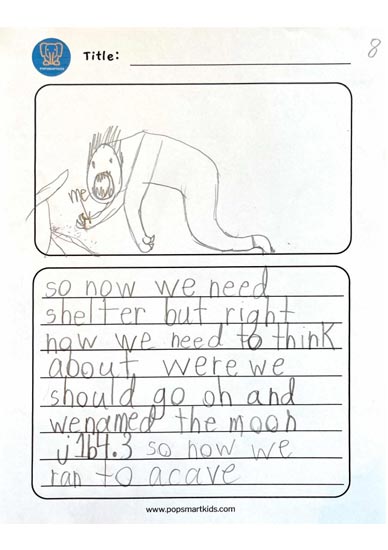 POPSMARTKIDS
Title:
8
me
so now we need
shelter but right
now we need to think
about were we
should go oh and
we named the moon
j1b4.3 so now we
ran to a cave
www.popsmartkids.com